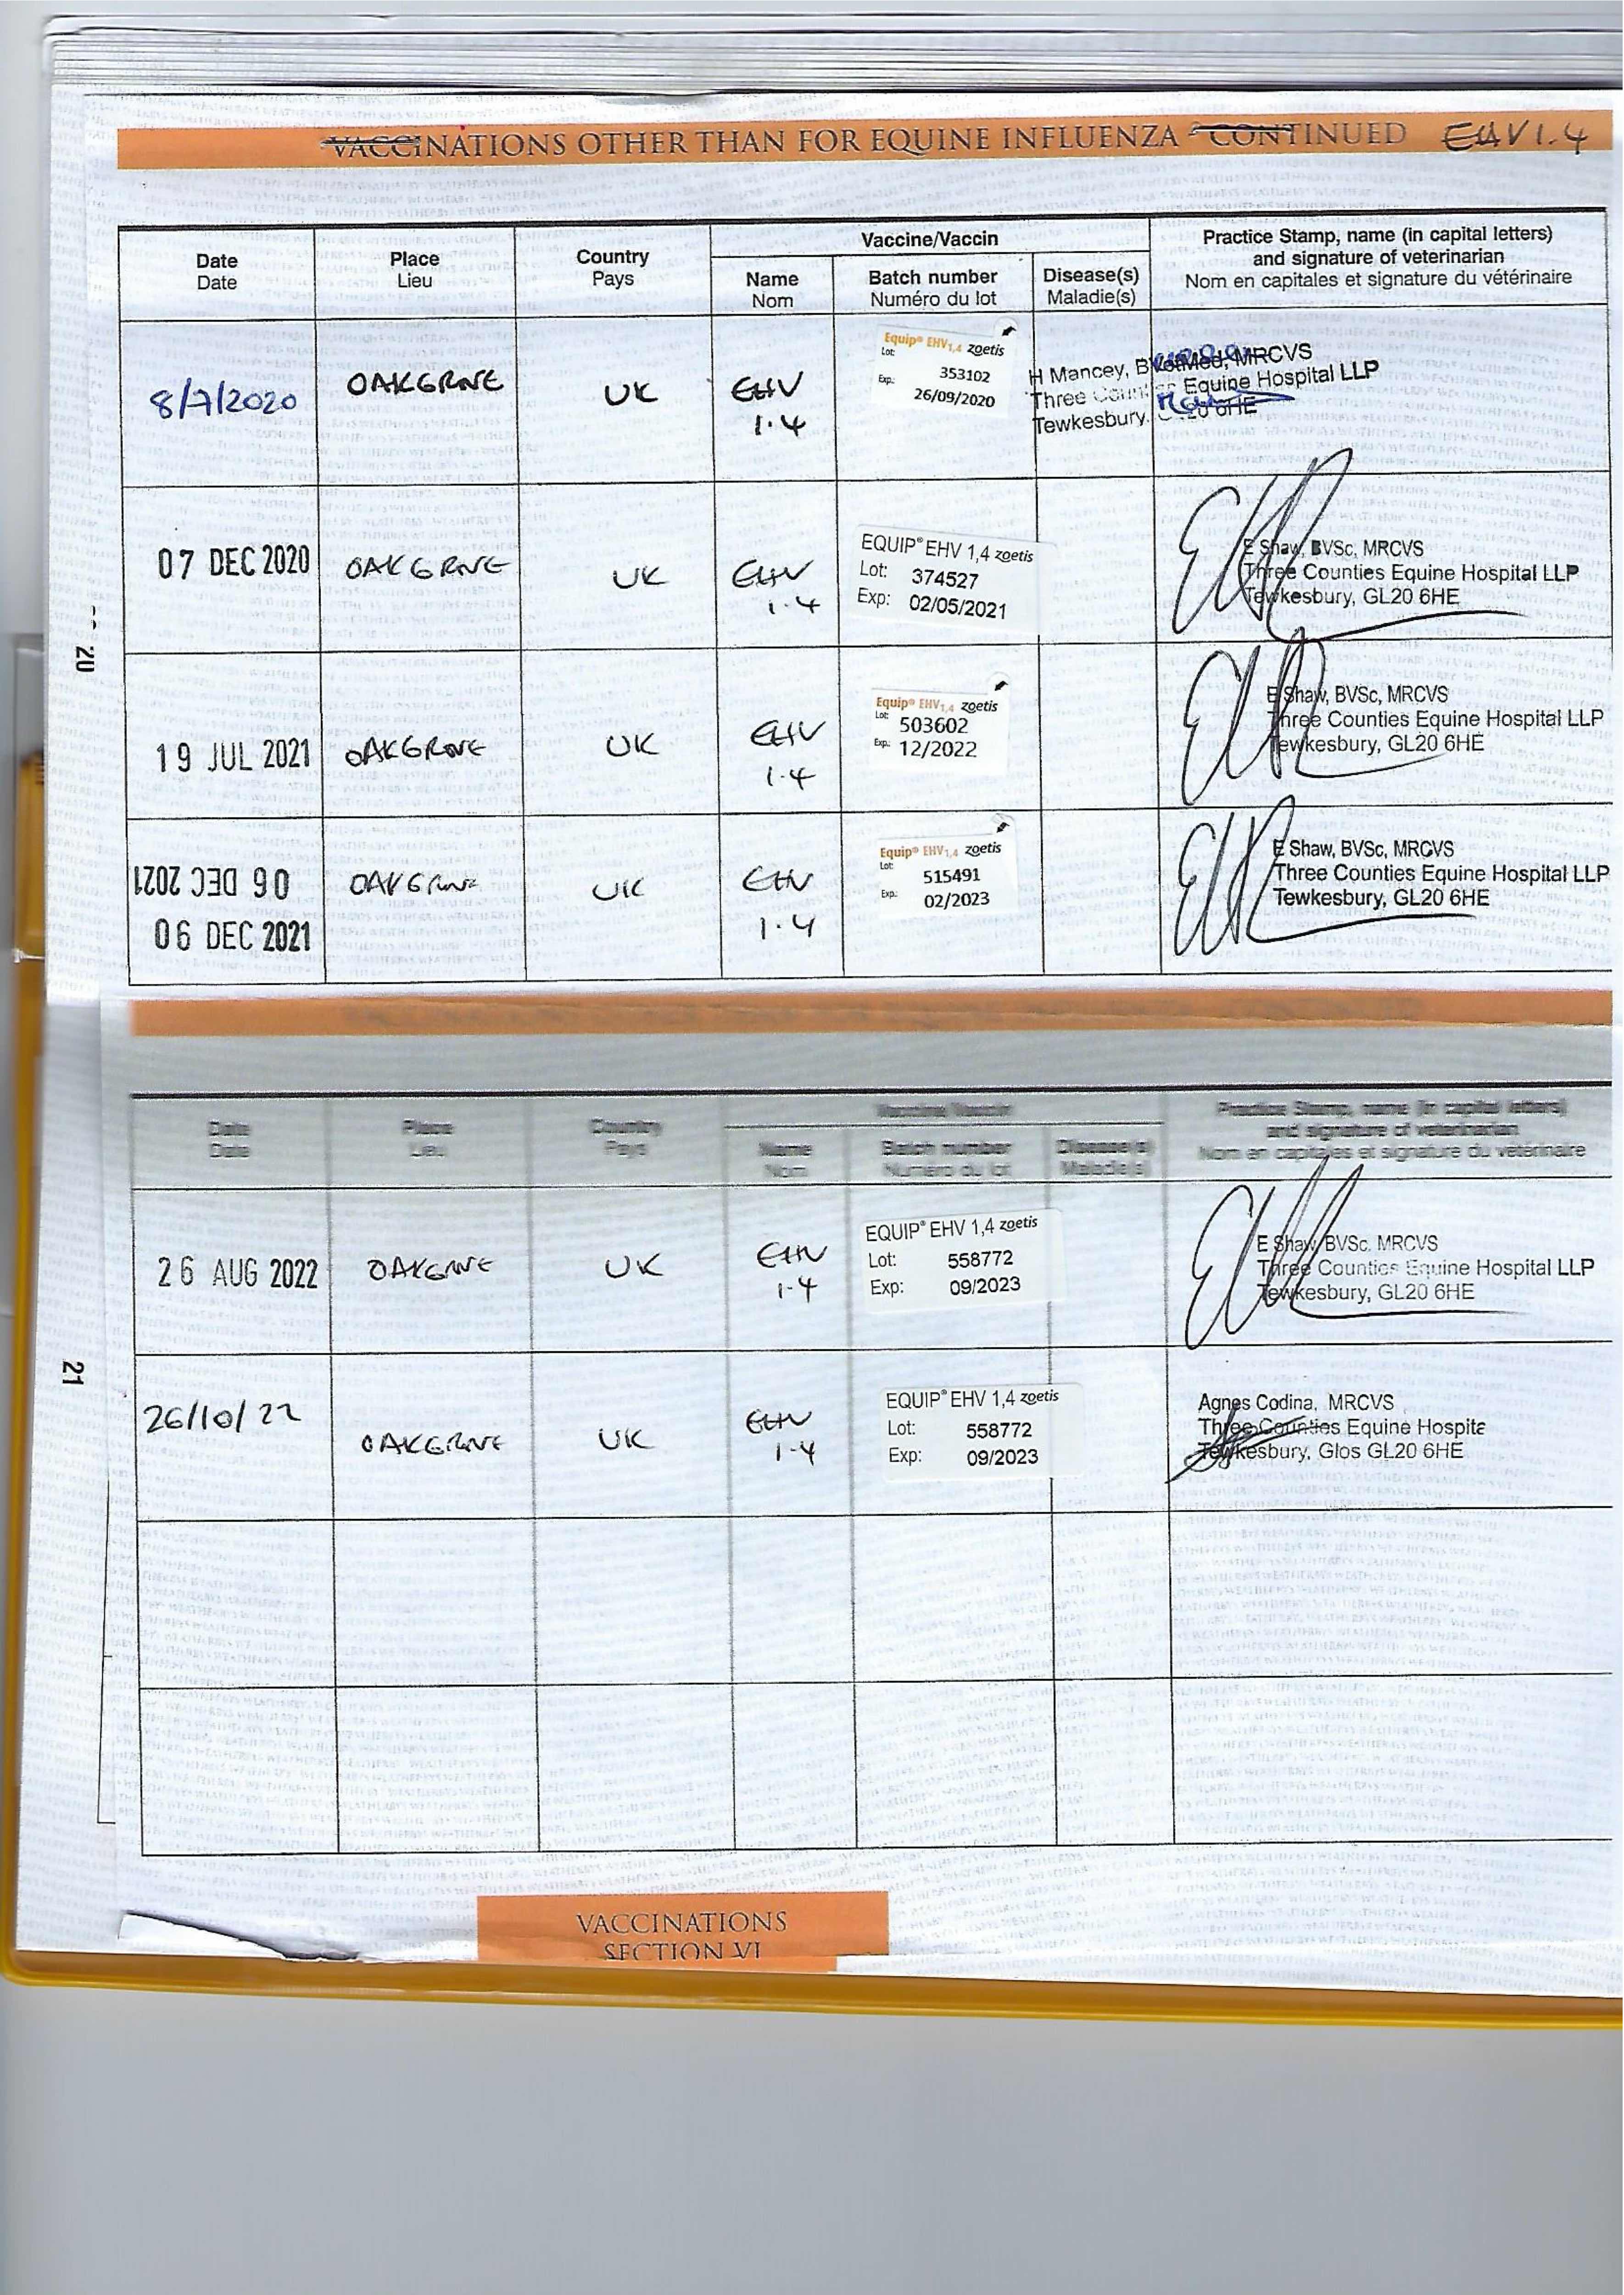 VACCINATIONS OTHER THAN FOR EQUINE INFLUENZA - CONTINUED EHV1.4
Date
Date
Place
Lieu
Country
Pays
Vaccine/Vaccin
Name
Nom
Batch number
Numéro du lot
Disease(s)
Maladie(s)
Practice Stamp, name (in capital letters)
and signature of veterinarian
Nom en capitales et signature du vétérinaire
8/7/2020
OAKGROVE
UK
EHV
1.4
Equip® EHV1,4 zoetis
Lot: 353102
Exp: 26/09/2020
H Mancey, BVetMed, MRCVS
Three Counties Equine Hospital LLP
Tewkesbury, GL20 6HE
07 DEC 2020
OAKGROVE
UK
EHV
1.4
EQUIP® EHV 1,4 zoetis
Lot: 374527
Exp: 02/05/2021
E Shaw, BVSc, MRCVS
Three Counties Equine Hospital LLP
Tewkesbury, GL20 6HE
20
19 JUL 2021
OAKGROVE
UK
EHV
1.4
Equip® EHV1,4 zoetis
Lot: 503602
Exp: 12/2022
E Shaw, BVSc, MRCVS
Three Counties Equine Hospital LLP
Tewkesbury, GL20 6HE
06 DEC 2021
06 DEC 2021
OAKGROVE
UK
EHV
1.4
Equip® EHV1,4 zoetis
Lot: 515491
Exp: 02/2023
E Shaw, BVSc, MRCVS
Three Counties Equine Hospital LLP
Tewkesbury, GL20 6HE
Date
Date
Place
Lieu
Country
Pays
Vaccine/Vaccin
Name
Nom
Batch number
Numéro du lot
Disease(s)
Maladie(s)
Practice Stamp, name (in capital letters)
and signature of veterinarian
Nom en capitales et signature du vétérinaire
26 AUG 2022
OAKGROVE
UK
EHV
1-4
EQUIP® EHV 1,4 zoetis
Lot: 558772
Exp: 09/2023
E Shaw BVSc. MRCVS
Three Counties Equine Hospital LLP
Tewkesbury, GL20 6HE
21
26/10/22
OAKGROVE
UK
EHV
1-4
EQUIP® EHV 1,4 zoetis
Lot: 558772
Exp: 09/2023
Agnes Codina, MRCVS
Three Counties Equine Hospita
Tewkesbury, Glos GL20 6HE
VACCINATIONS
SECTION VI